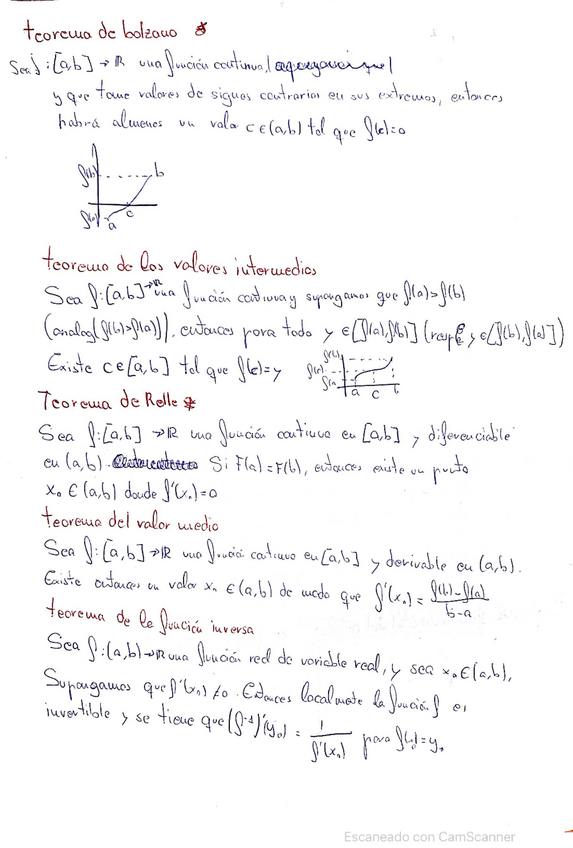 teorema de bolzano *
Sea f: [a,b] → ℝ una función continua,
y que tome valores de signos contrarios en sus extremos, entonces
habrá almenos un valor c∈(a,b) tal que f(c)=0
f(b)
b
f(a)
a
c
teorema de los valores intermedios
Sea f: [a,b] → ℝ una función continua y supongamos que f(a)>f(b)
(analog(f(b)>f(a))), entonces para todo y ∈[f(a),f(b)] (resp y ∈[f(b),f(a)])
Existe c∈[a,b] tal que f(c)=y
f(b)
f(c)
f(a)
a c b
Teorema de Rolle *
Sea f: [a,b] → ℝ una función continua en [a,b] y diferenciable
en (a,b). Si F(a)=F(b), entonces existe un punto
x₀ ∈ (a,b) donde f'(x₀)=0
teorema del valor medio
Sea f: [a,b] → ℝ una función continua en [a,b] y derivable en (a,b).
Existe entonces un valor x₀ ∈ (a,b) de modo que f'(x₀) = f(b)-f(a) / b-a
teorema de la función inversa
Sea f: (a,b) → ℝ una función real de variable real, y sea x₀∈(a,b),
Supongamos que f'(x₀) ≠0. Entonces localmente la función f es
invertible y se tiene que (f⁻¹)'(y₀) = 1 / f'(x₀) para f(x₀)=y₀
Escaneado con CamScanner